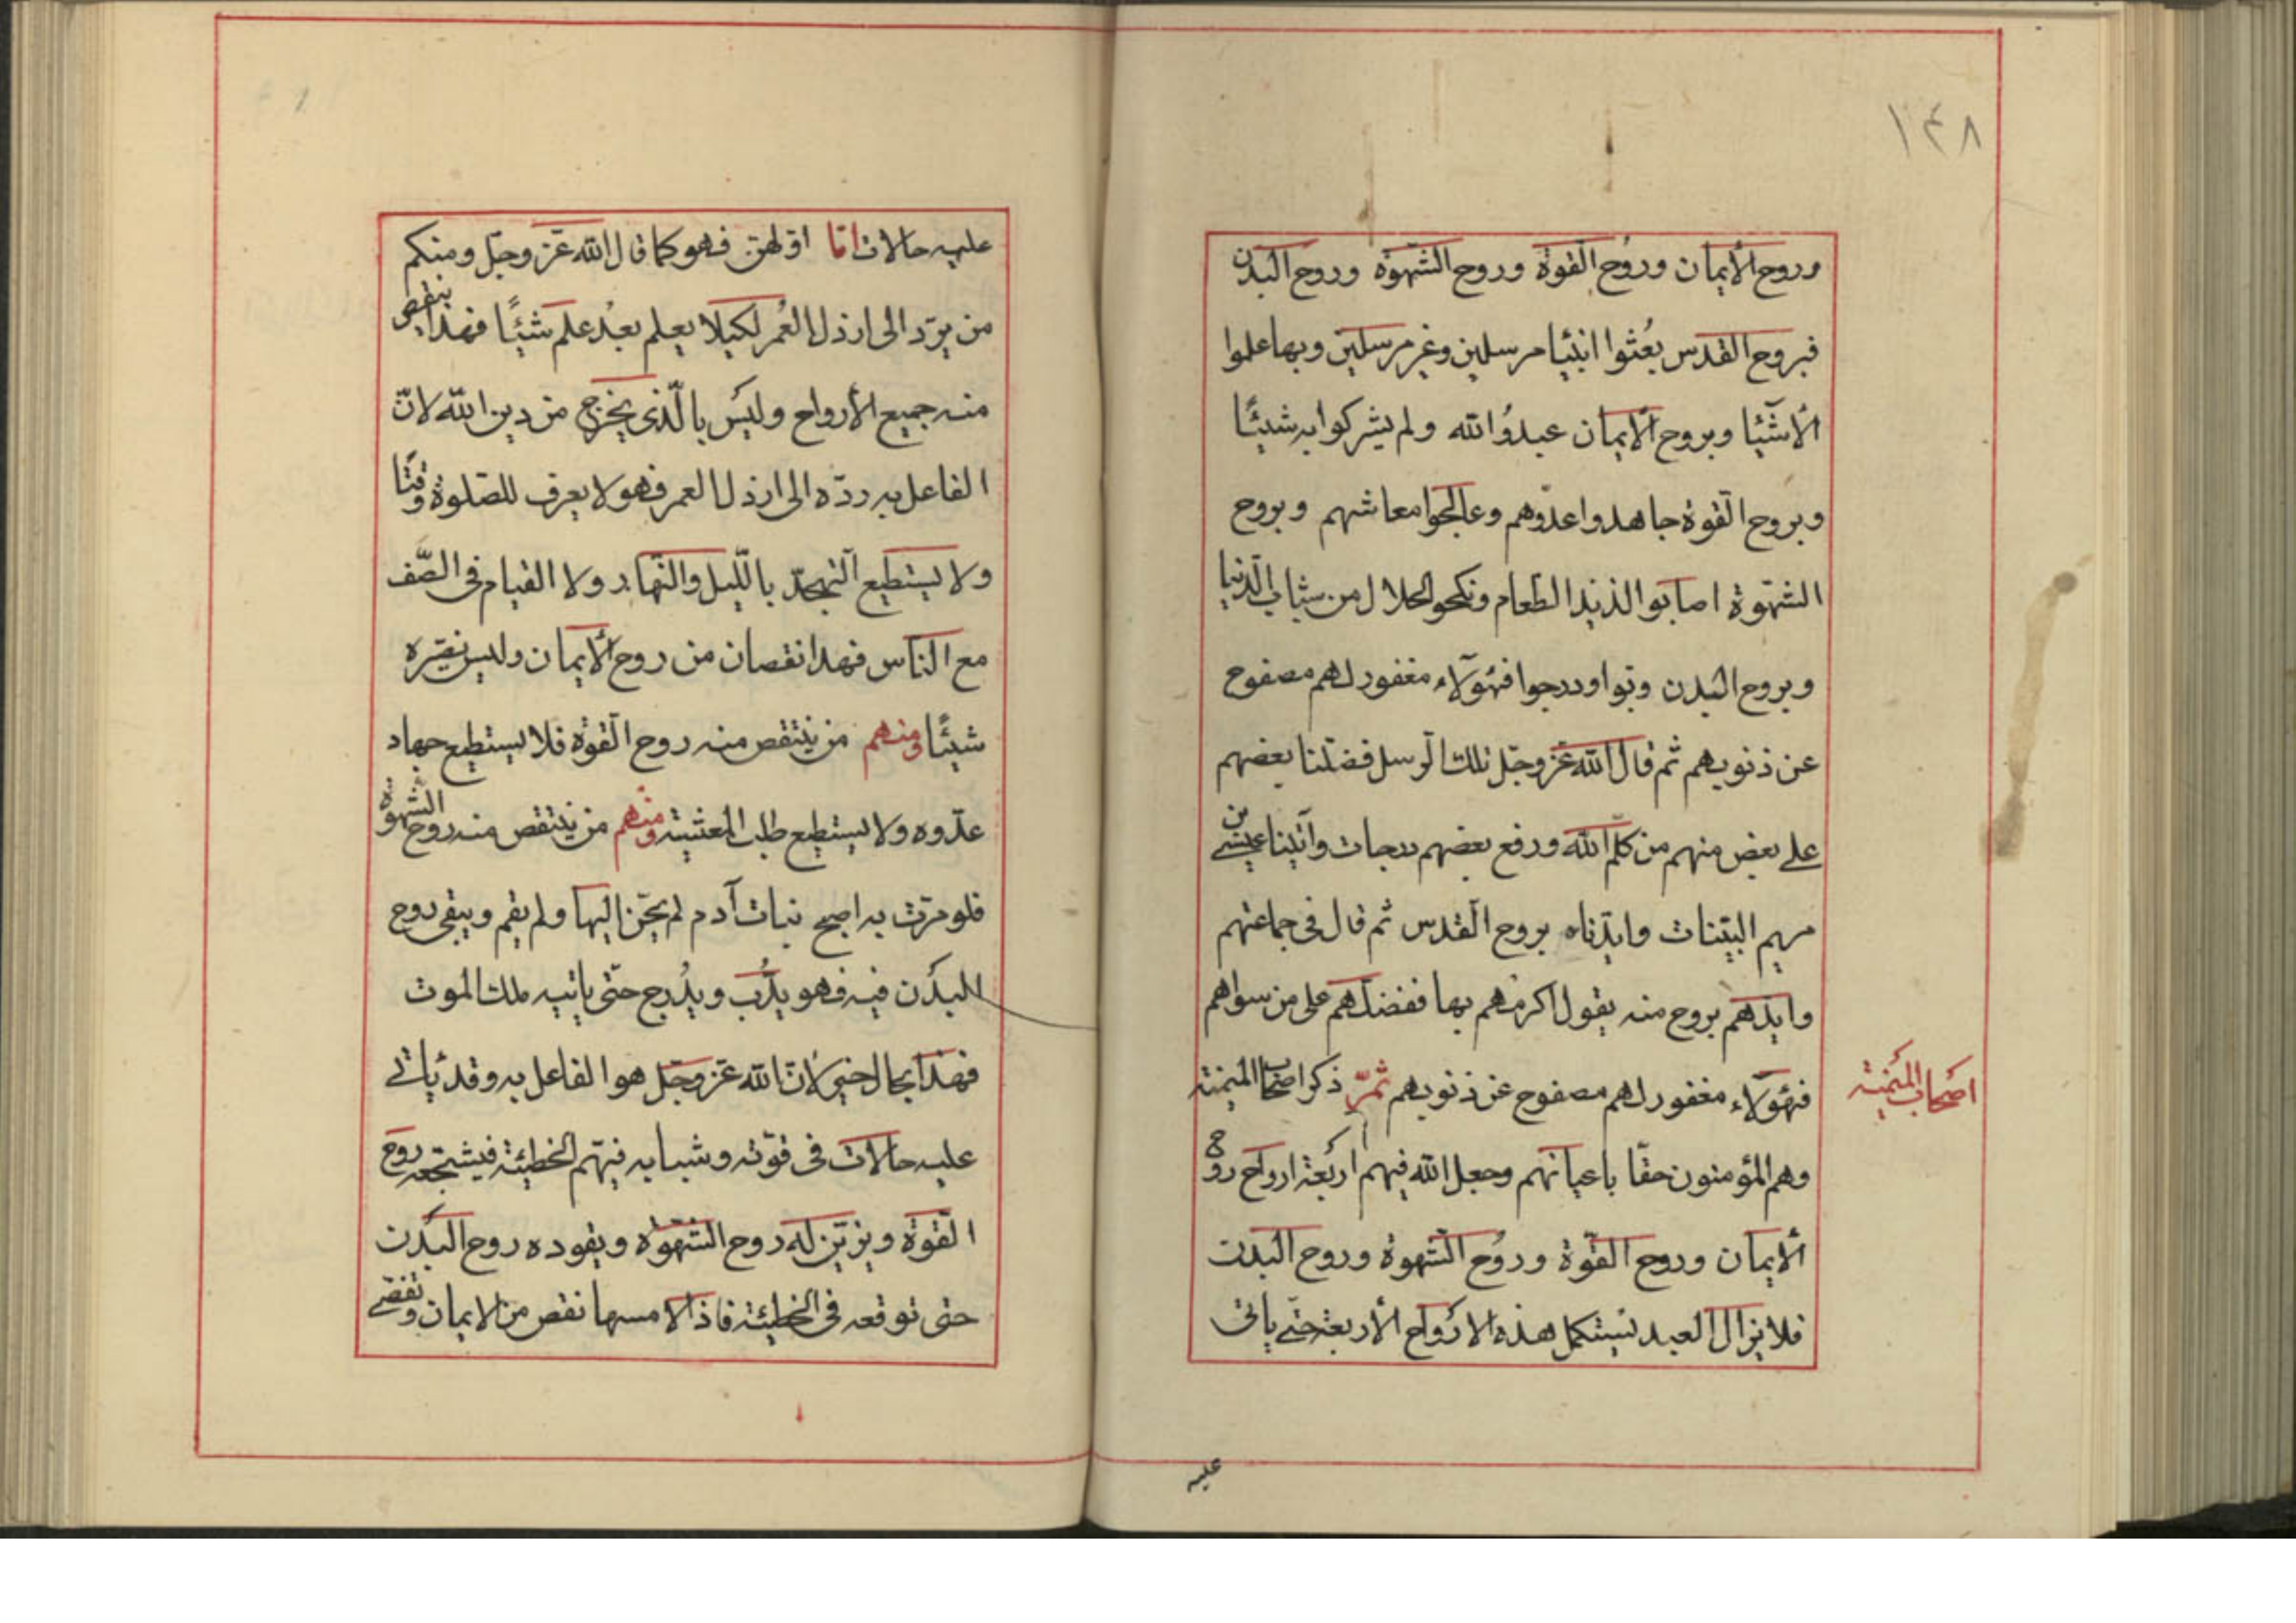 ١٤٨
وروح الأيمان وروح القوة وروح الشهوة وروح البدن
فبروح القدس بعثوا انبيا مرسلين وغير مرسلين وبها علموا
الأشيا وبروح الأيمان عبدوا الله ولم يشركوا به شيئًا
وبروح القوة جاهدوا عدوهم وعالجوا معاشهم وبروح
الشهوة اصابوا لذيذ الطعام ونكحوا الحلال من شباب الدنيا
وبروح البدن دبوا ودرجوا فهؤلاء مغفور لهم مصفوح
عن ذنوبهم ثم قال الله عز وجل تلك الرسل فضلنا بعضهم
على بعض منهم من كلم الله ورفع بعضهم درجات وآتينا عيسى بن
مريم البينات وايدناه بروح القدس ثم قال في جماعتهم
وايدهم بروح منه يقول اكرمهم بها ففضلهم على من سواهم
فهؤلاء مغفور لهم مصفوح عن ذنوبهم ثمّ ذكر اصحاب الميمنة
اصحاب الميمنة
وهم المؤمنون حقّا باعيانهم وجعل الله فيهم اربعة ارواح روح
الأيمان وروح القوّة وروح الشهوة وروح البدن
فلا يزال العبد يستكمل هذه الارواح الأربعة حتى ياتى
عليه
عليه حالات امّا اولهن فهو كما قال الله عزّ وجلّ ومنكم
من يردّ الى ارذل العمر لكيلا يعلم بعد علم شيئًا فهذا ينقص
منه جميع الأرواح وليس بالّذى يخرج من دين الله لانّ
الفاعل به ردّه الى ارذل العمر فهو لا يعرف للصّلوة وقتًا
ولا يستطيع التهجّد بالليل والنّهار ولا القيام فى الصّف
مع النّاس فهذا نقصان من روح الأيمان وليس يضره
شيئًا ومنهم من ينتقص منه روح القوة فلا يستطيع جهاد
عدّوه ولا يستطيع طلب المعيشة ومنهم من ينتقص منه روح الشهوة
فلو مرّت به اصبح بنات آدم لم يحنّ اليها ولم يقم ويبقى روح
البدن فيه فهو يدّب ويدرج حتّى ياتيه ملك الموت
فهذا بحال خير لانّ الله عزّ وجلّ هو الفاعل به وقد يأتى
عليه حالات فى قوّته وشبابه فيهمّ الخطيئة فيشجعه روح
القوّة ويزيّن له روح الشهوة ويقوده روح البدن
حتى توقعه فى الخطيئة فاذا لامسها نقص من الايمان وتفصى